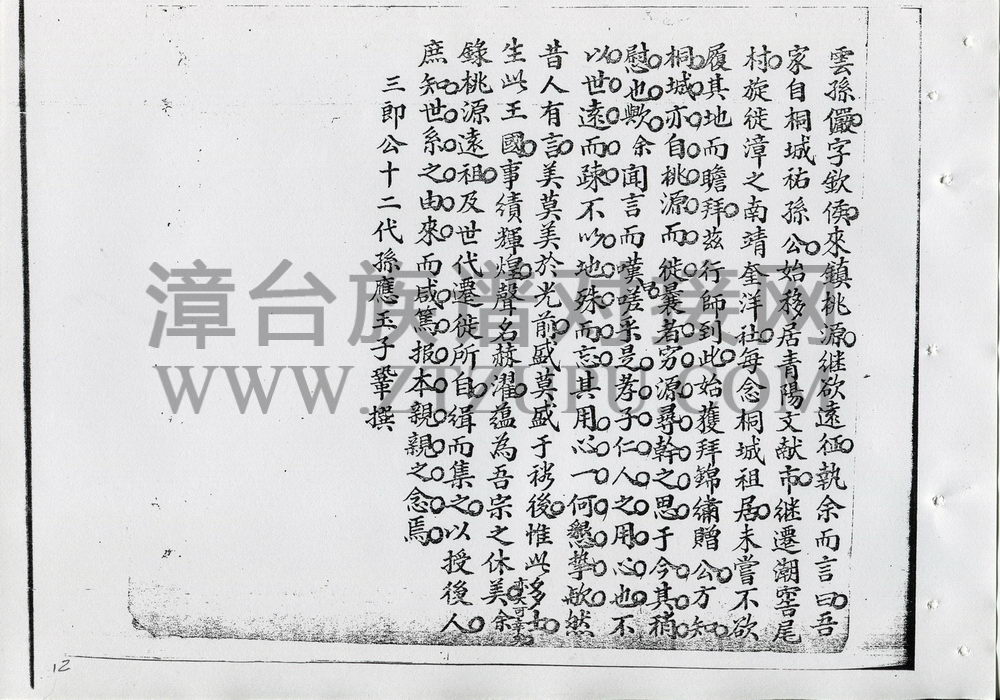 雲孫儼字欽侯來鎮桃源継欲遠征執余而言曰吾
家自桐城祐孫公始移居青陽文献市継遷潮窖尾
村旋徙漳之南靖奎洋社每念桐城祖居未嘗不欲
履其地而瞻拜茲行師到此始獲拜錦繡贈公方知
桐城亦自桃源而徙曩者穷源尋幹之思于今其稍
慰也歟余聞言而嘆曰嗟乎是孝子仁人之用心也不
以世遠而踈不以地殊而忘其用心一何懇摯㪍然
昔人有言美莫美於光前盛莫盛于裕後惟此多士
生此王國事績輝煌聲名赫濯蕴為吾宗之休美余
錄桃源遠祖及世代遷徙所自緝而集之以授後人
庶知世系之由來而咸篤报本親親之念焉
三郎公十二代孫應玉子鞏撰
漳台族谱对接网
WWW.ZTZUPU.COM
12